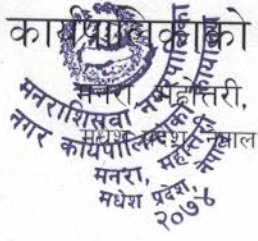 कार्यपालिकाको
मनरा, महोत्तरी,
मधेश प्रदेश, नेपाल
मनराशिसवा नगरपालिका
नगर कार्यपालिकाको कार्यालय
मनरा, महोत्तरी
मधेश प्रदेश, नेपाल
२०७४